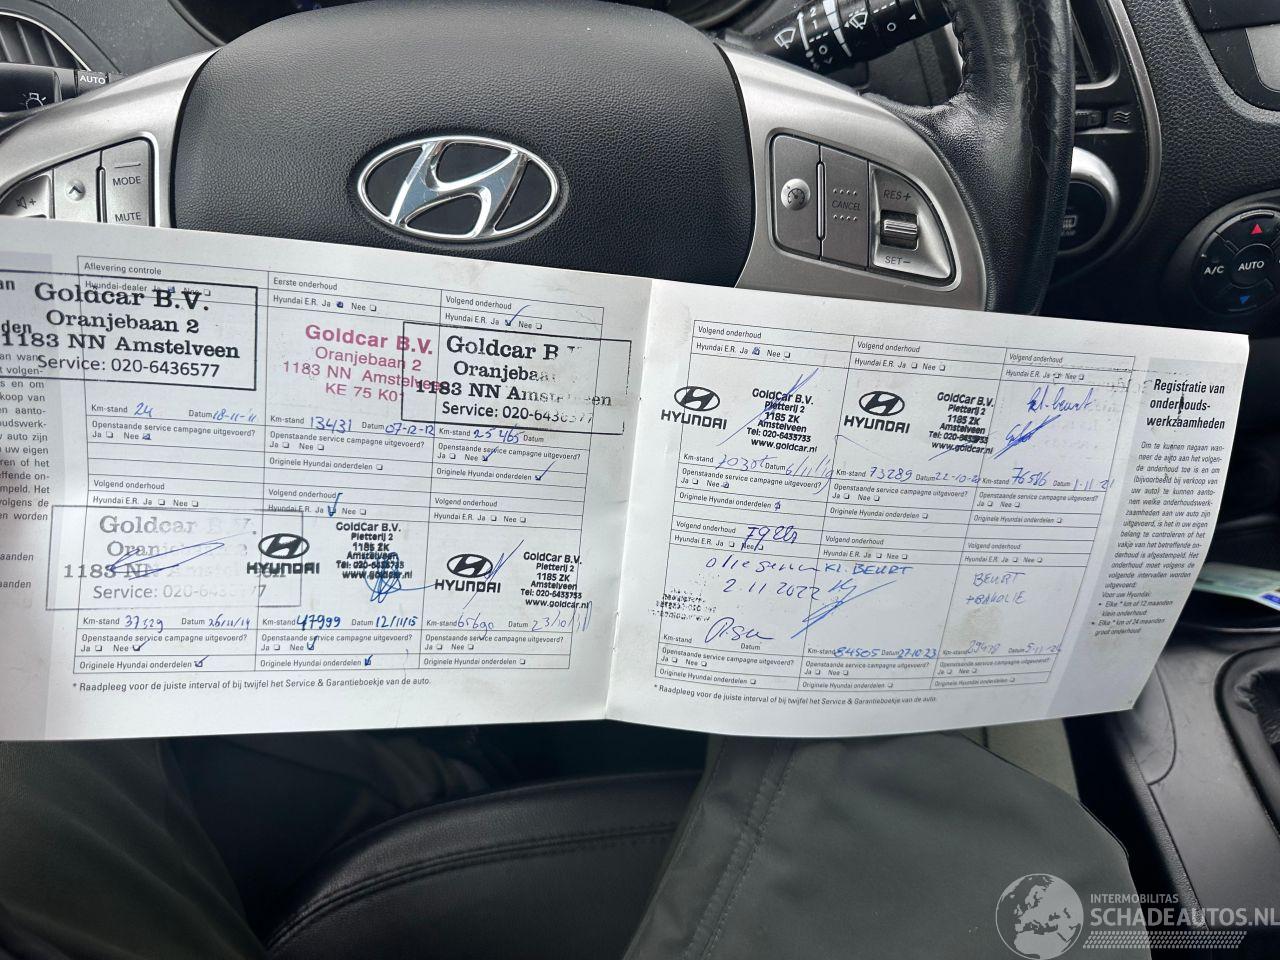 AUTO
MODE
MUTE
RES+
CANCEL
SET-
A/C
AUTO
Aflevering controle
Hyundai-dealer Ja Nee
Goldcar B.V.
Oranjebaan 2
1183 NN Amstelveen
Service: 020-6436577
Km-stand 24 Datum 18-11-'11
Openstaande service campagne uitgevoerd?
Ja Nee
Eerste onderhoud
Hyundai E.R. Ja Nee
Goldcar B.V.
Oranjebaan 2
1183 NN Amstelveen
KE 75 K01
Km-stand 13431 Datum 07-12-12
Openstaande service campagne uitgevoerd?
Ja Nee
Originele Hyundai onderdelen
Volgend onderhoud
Hyundai E.R. Ja Nee
Goldcar B.V.
Oranjebaan
1183 NN Amstelveen
Service: 020-6436577
Km-stand 25465 Datum
Openstaande service campagne uitgevoerd?
Ja Nee
Originele Hyundai onderdelen
Volgend onderhoud
Hyundai E.R. Ja Nee
Goldcar B.V.
Oranjebaan 2
1183 NN Amstelveen
Service: 020-6436577
Km-stand 37329 Datum 26/11/14
Openstaande service campagne uitgevoerd?
Ja Nee
Originele Hyundai onderdelen
Volgend onderhoud
Hyundai E.R. Ja Nee
HYUNDAI
GoldCar B.V.
Pletterij 2
1185 ZK
Amstelveen
Tel: 020-6433733
www.goldcar.nl
Km-stand 47999 Datum 12/11/15
Openstaande service campagne uitgevoerd?
Ja Nee
Originele Hyundai onderdelen
Volgend onderhoud
Hyundai E.R. Ja Nee
HYUNDAI
GoldCar B.V.
Pletterij 2
1185 ZK
Amstelveen
Tel: 020-6433733
www.goldcar.nl
Km-stand 65690 Datum 23/10/
Openstaande service campagne uitgevoerd?
Ja Nee
Originele Hyundai onderdelen
* Raadpleeg voor de juiste interval of bij twijfel het Service & Garantieboekje van de auto.
Volgend onderhoud
Hyundai E.R. Ja Nee
HYUNDAI
GoldCar B.V.
Pletterij 2
1185 ZK
Amstelveen
Tel: 020-6433733
www.goldcar.nl
Km-stand Datum 6/11/19
Openstaande service campagne uitgevoerd?
Ja Nee
Originele Hyundai onderdelen
Volgend onderhoud
Hyundai E.R. Ja Nee
HYUNDAI
GoldCar B.V.
Pletterij 2
1185 ZK
Amstelveen
Tel: 020-6433733
www.goldcar.nl
Km-stand 73289 Datum 22-10-20
Openstaande service campagne uitgevoerd?
Ja Nee
Originele Hyundai onderdelen
Volgend onderhoud
Hyundai E.R. Ja Nee
kl. beurt
Km-stand 76516 Datum 1-11-21
Openstaande service campagne uitgevoerd?
Ja Nee
Originele Hyundai onderdelen
Volgend onderhoud
Hyundai E.R. Ja Nee
olie
2.11 2022
Km-stand
Datum
Openstaande service campagne uitgevoerd?
Ja Nee
Originele Hyundai onderdelen
Volgend onderhoud
Hyundai E.R. Ja Nee
KL. BEURT
Km-stand 84505 Datum 27-10-23
Openstaande service campagne uitgevoerd?
Ja Nee
Originele Hyundai onderdelen
Volgend onderhoud
Hyundai E.R. Ja Nee
BEURT
Km-stand Datum
Openstaande service campagne uitgevoerd?
Ja Nee
Originele Hyundai onderdelen
* Raadpleeg voor de juiste interval of bij twijfel het Service & Garantieboekje van de auto.
Registratie van
onderhouds-
werkzaamheden
Om te kunnen nagaan wan-
neer de auto aan het volgen-
de onderhoud toe is en om
(bijvoorbeeld bij verkoop van
uw auto) te kunnen aanto-
nen welke onderhoudswerk-
zaamheden aan uw auto zijn
uitgevoerd, is het in uw eigen
belang te controleren of het
vakje van het betreffende on-
derhoud is afgestempeld. Het
onderhoud moet volgens de
volgende intervallen worden
uitgevoerd:
Voor uw Hyundai:
• Elke * km of 12 maanden
klein onderhoud
• Elke * km of 24 maanden
groot onderhoud
INTERMOBILITAS
SCHADEAUTOS.NL